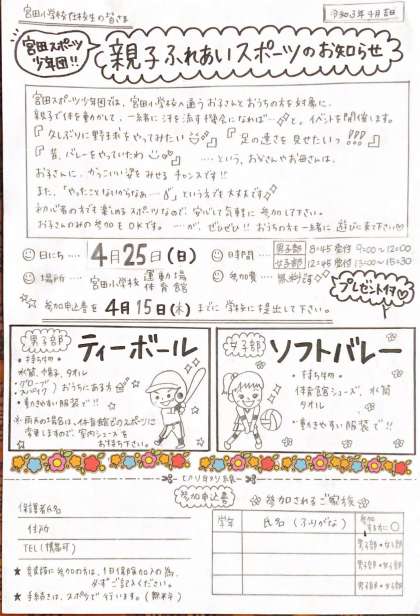 宮田小学校在校生の皆さま
令和3年4月吉日
宮田スポーツ
少年団!!
親子ふれあいスポーツのお知らせ
宮田スポーツ少年団では、宮田小学校へ通うお子さんとおうちの方を対象に、
親子で体を動かして、一緒に汗を流す機会になれば…と、イベントを開催します。
『久しぶりに野球をやってみたい』『足の速さを見せたいっ!!!』
『昔、バレーをやっていたわ』……という、お父さんやお母さんは、
お子さんに、かっこいい姿をみせるチャンスです!!
また、「やったことないからなぁ…」という方でも大丈夫です
初心者の方でも楽しめるスポーツなので、安心して気軽に参加して下さい。
お子さんのみの参加もOKです。……が、ぜひぜひ!!おうちの方と一緒に遊びに来て下さい
日にち…4月25日(日)
時間…男子部 8:45受付 9:00~12:00
女子部 12:45受付 13:00~15:30
場所…宮田小学校 運動場
体育館
参加費…無料
プレゼント付
参加申込書を4月15日(木)までに学校に提出して下さい。
男子部
ティーボール
・持ち物
水筒、帽子、タオル
・グローブ
・スパイク おうちにある方
・動きやすい服装で!!
※雨天の場合は、体育館でのスポーツに
変更しますので、室内シューズを
お持ち下さい。
女子部
ソフトバレー
・持ち物
体育館シューズ、水筒
タオル
・動きやすい服装で!!
キリトリ線
参加申込書
保護者氏名
住所
TEL(携帯可)
参加されるご家族
学年
氏名(ふりがな)
参加
する方に○
男子部・女子部
男子部・女子部
男子部・女子部
★ 当日参加の方は、1日保険加入の為、
必ずご記入ください。
★ 手続きは、スポ少で行います。(無料)